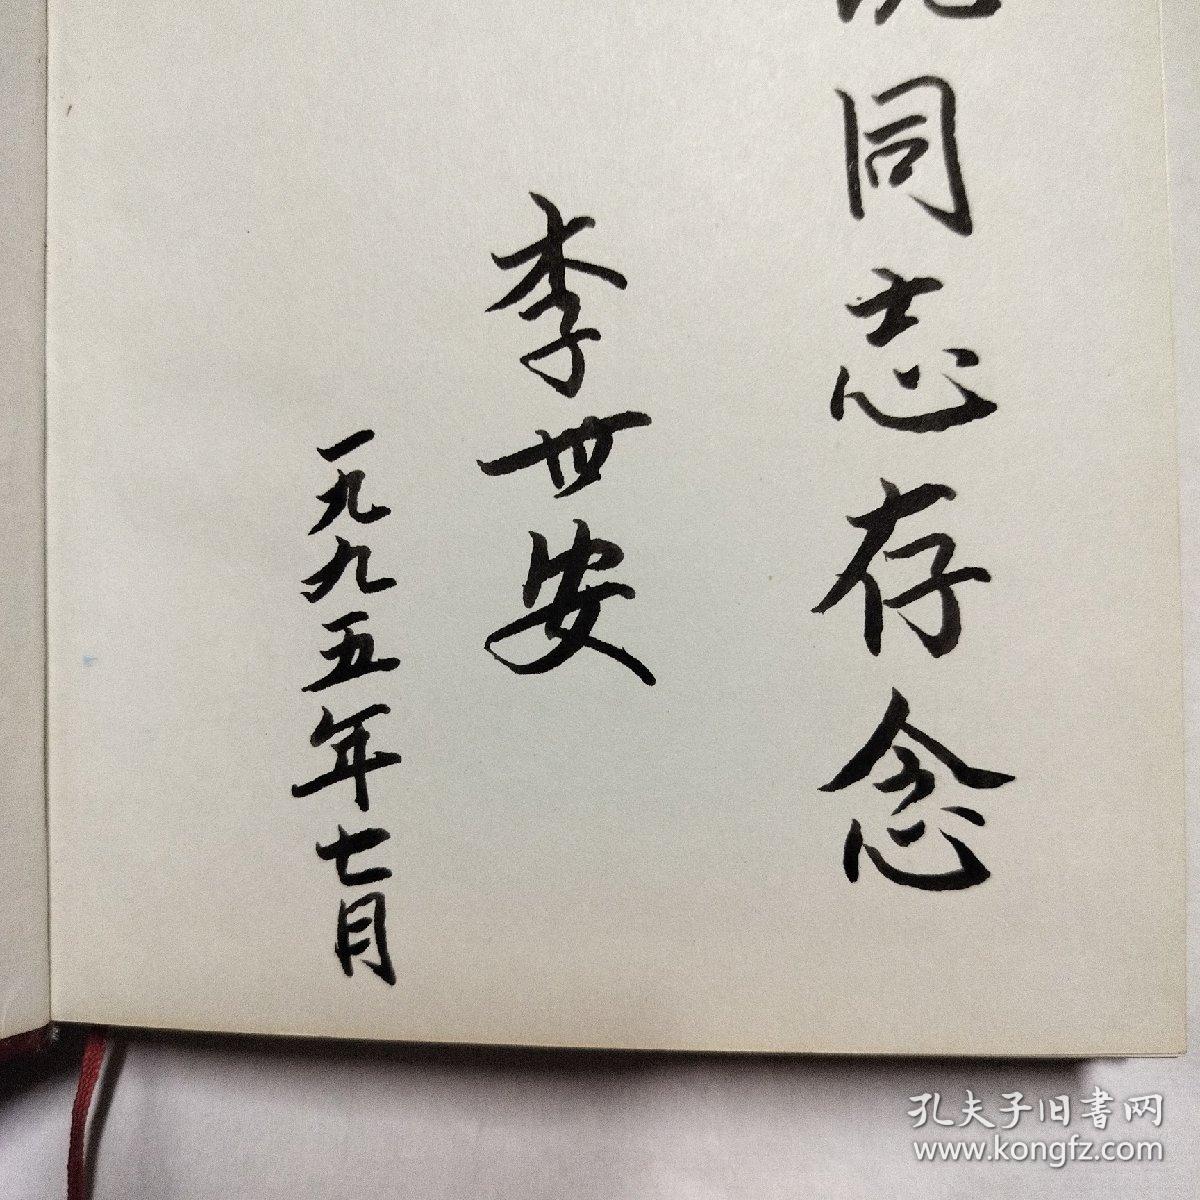 同志存念
李世安
一九九五年七月
孔夫子旧書网
www.kongfz.com